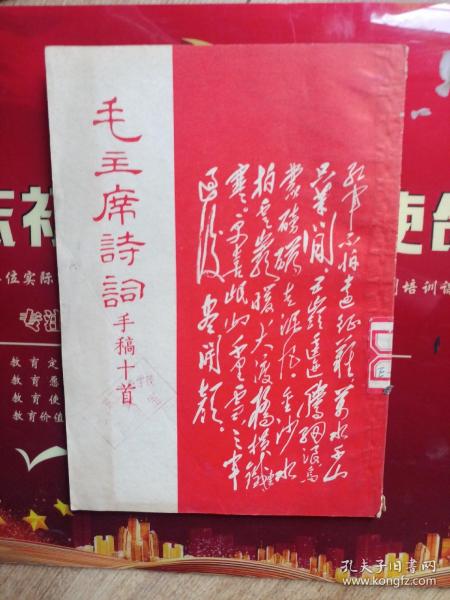 毛主席詩詞
手稿十首
紅軍不怕遠征難萬水千山
只等閒五嶺逶迤騰細浪烏
蒙磅礴走泥丸金沙水
拍雲崖暖大渡橋橫鐵索
寒更喜岷山千里雪三軍
過後盡開顏
位实际
培训课
专注
教育定
教育愿
教育使
教育价值
孔夫子旧书网
www.kongfz.com